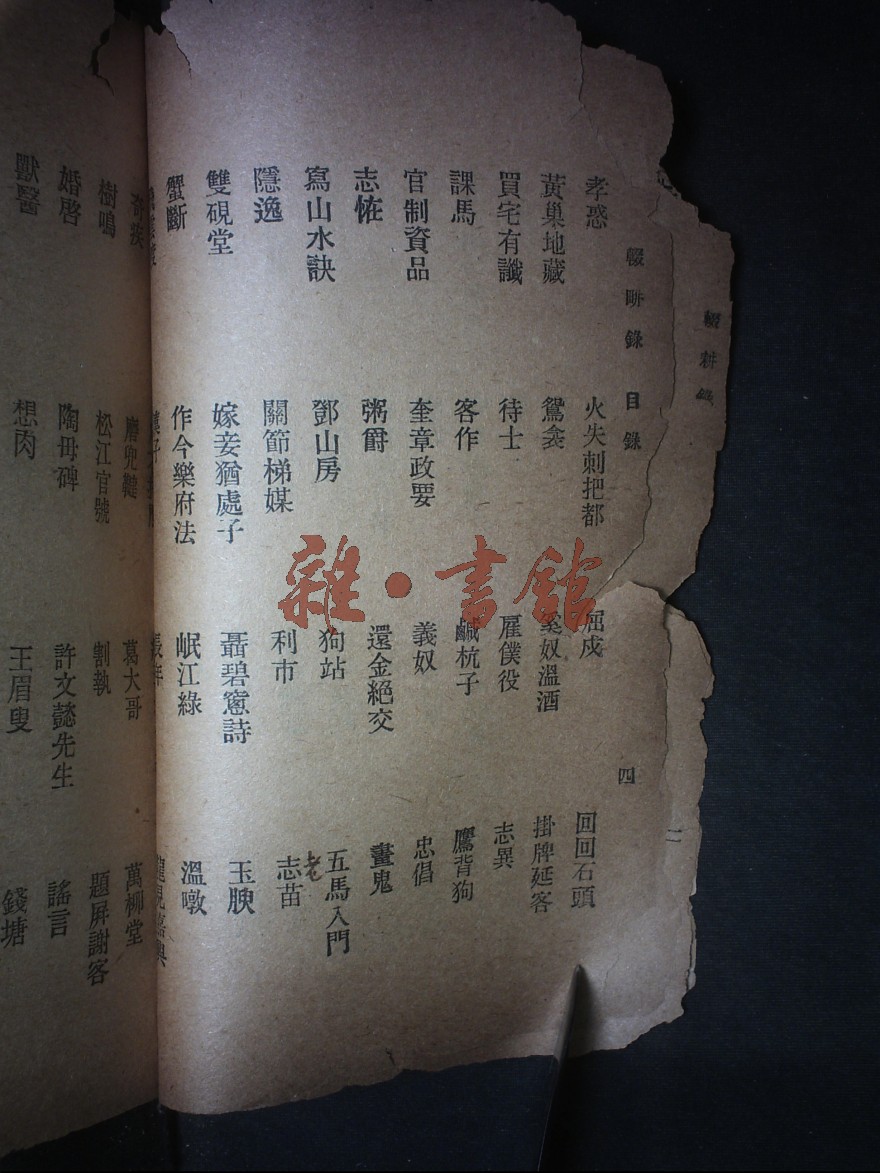 輟耕錄
二
輟畊錄 目錄 四
孝惑 火失刺把都 屈戍 回回石頭
黃巢地藏 鴛衾 奴溫酒 掛牌延客
買宅有讖 待士 雇僕役 志異
課馬 客作 鹹杬子 鷹背狗
官制資品 奎章政要 義奴 忠倡
志恠 粥爵 還金絕交 畫鬼
寫山水訣 鄧山房 狗站 五馬入門
隱逸 關節梯媒 利市 志苗
老
雙硯堂 嫁妾猶處子 聶碧窻詩 玉腴
蟹斷 作今樂府法 岷江綠 溫暾
奇疾 磨兜鞬 葛大哥 萬柳堂
樹鳴 松江官號 割執 題屏謝客
婚啓 陶母碑 許文懿先生 謠言
獸醫 想肉 王眉叟 錢塘
雜·書館